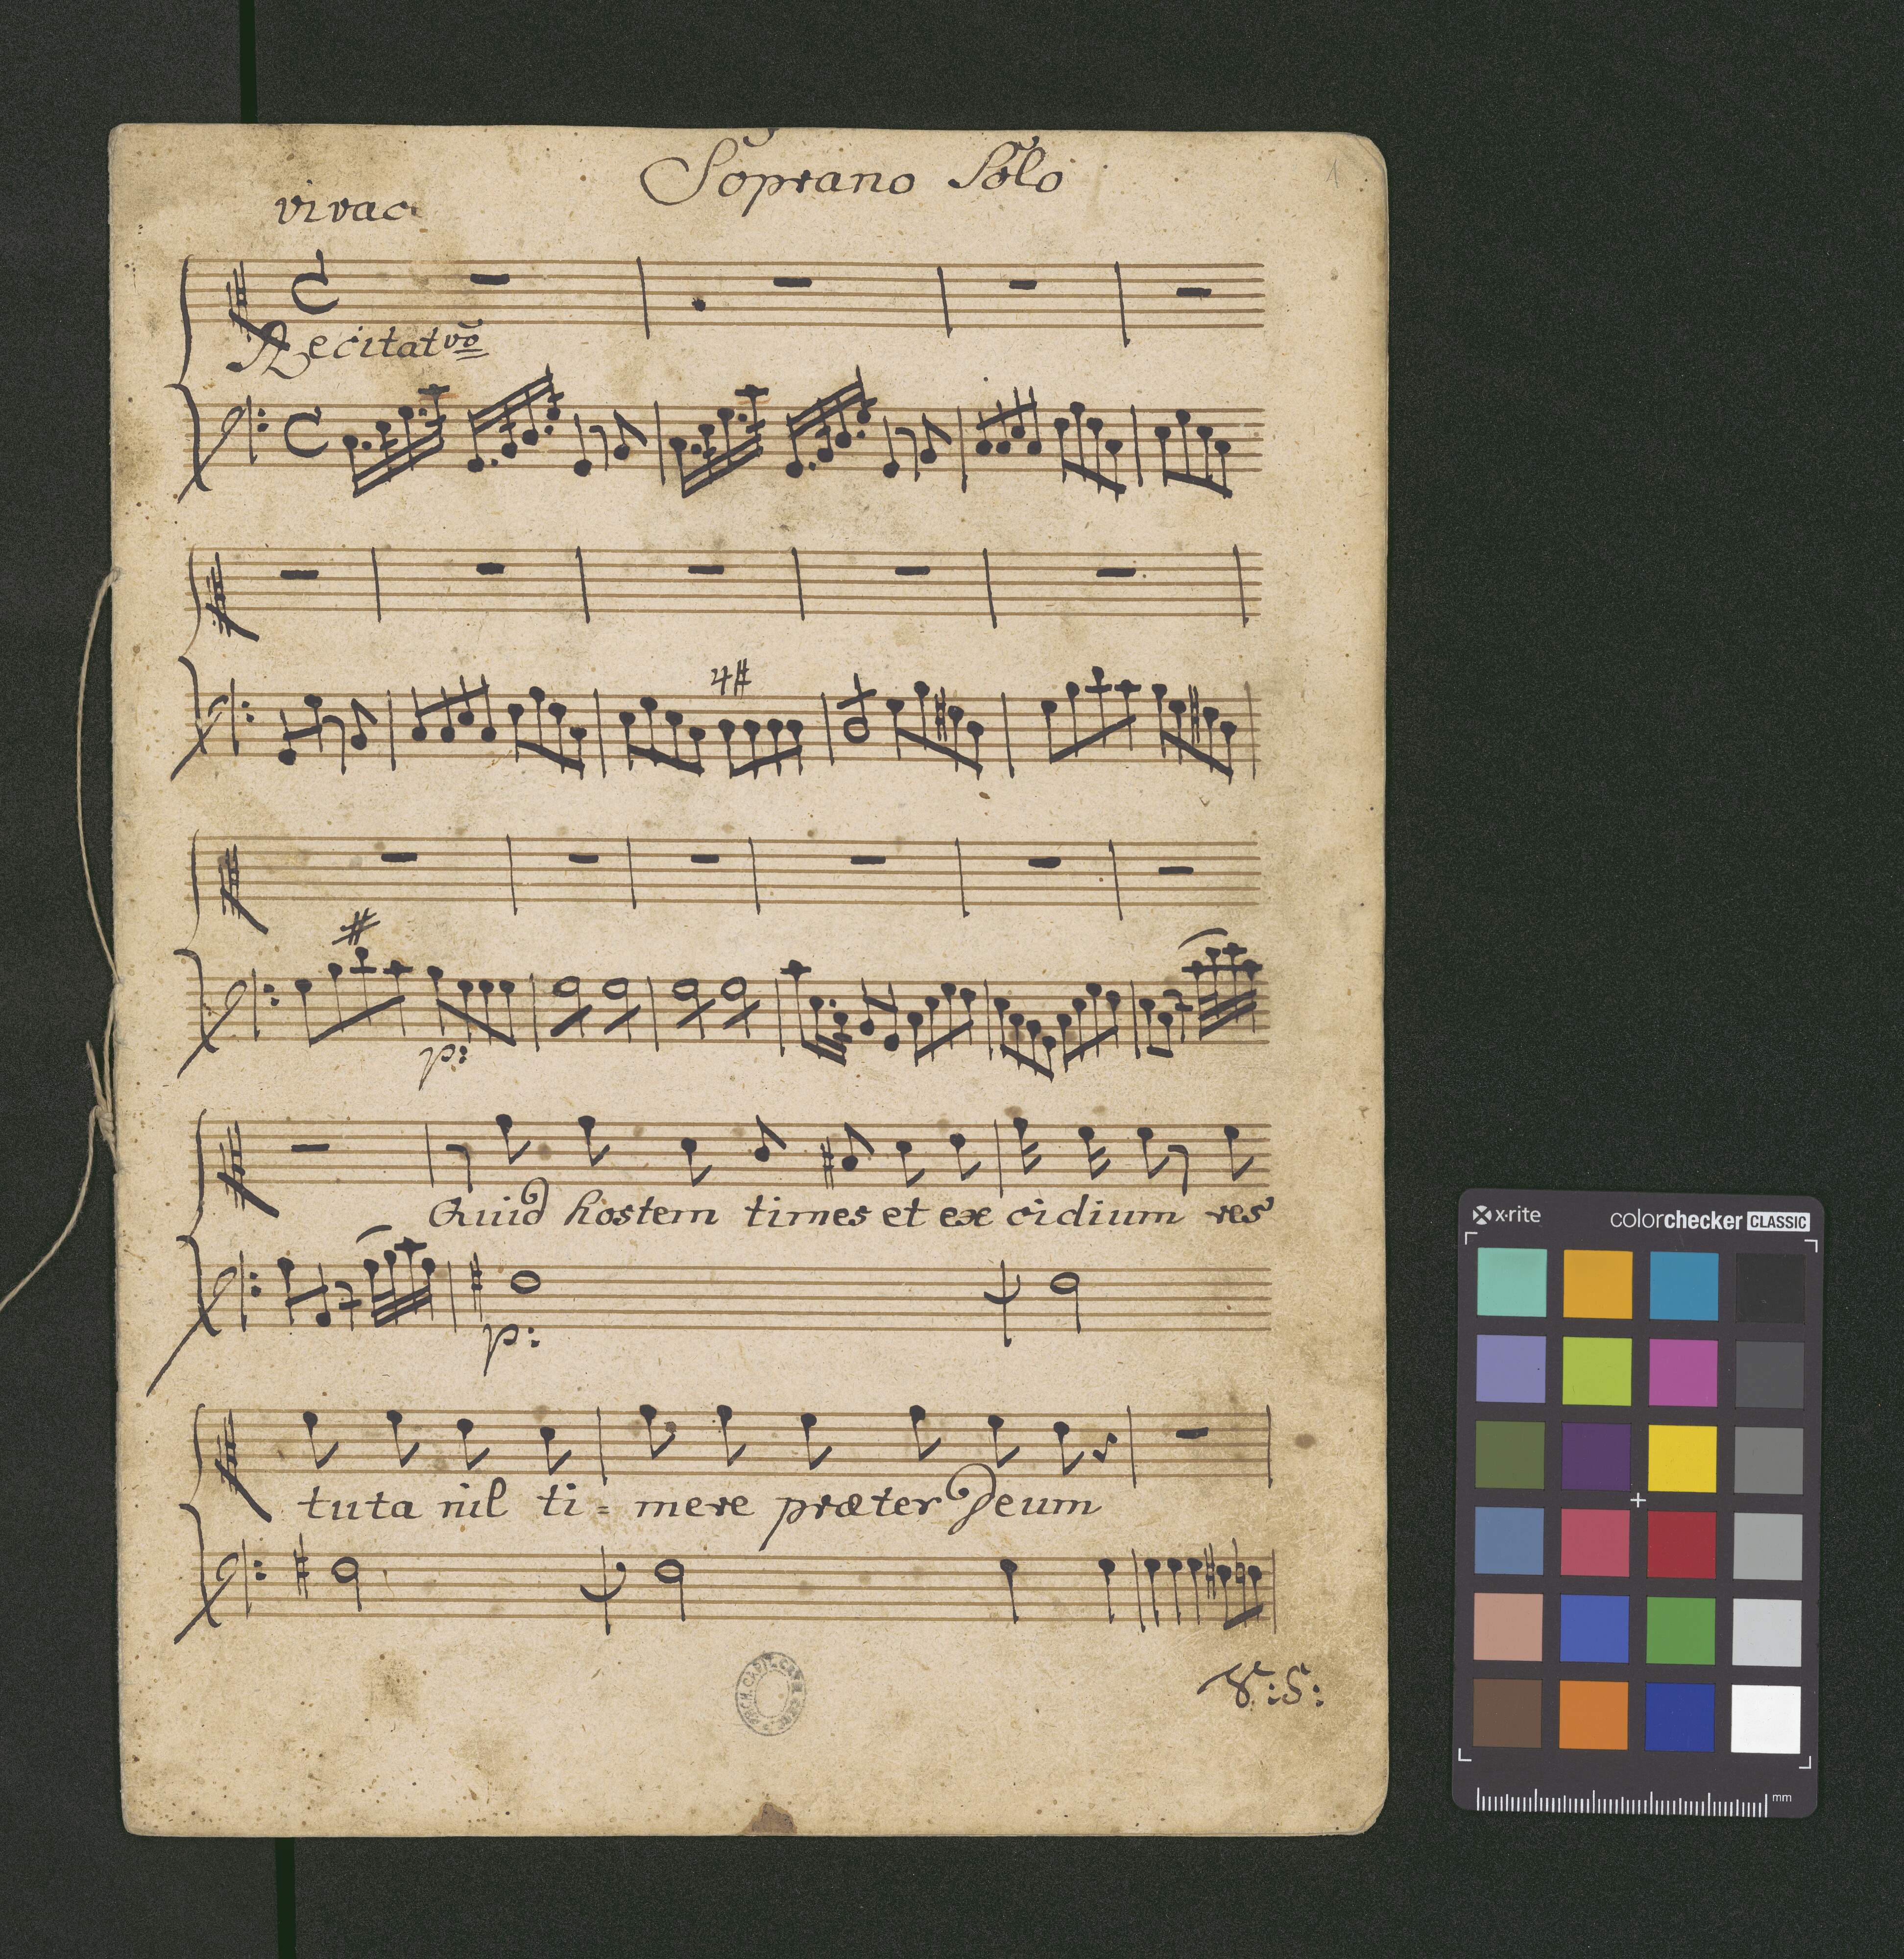 Soprano Solo
1
vivac
Recitatvo
4#
#
p:
Quid hostem times et ex cidium res
p:
tuta nil ti = mere præter Deum
V:S:
x·rite colorchecker CLASSIC
mm